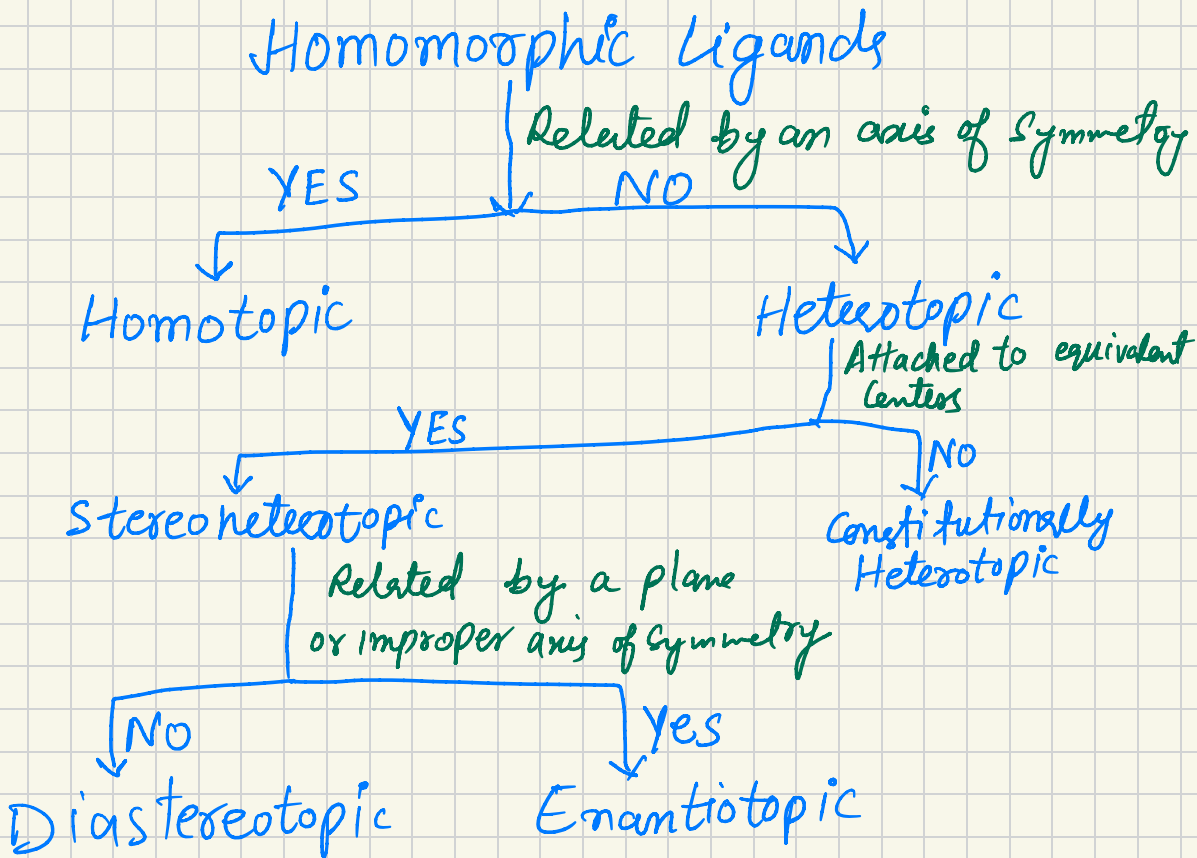 Homomorphic Ligands
Related by an axis of Symmetry
YES
NO
Homotopic
Heterotopic
Attached to equivalent
Centers
YES
NO
Stereoheterotopic
Constitutionally
Heterotopic
Related by a plane
or improper axis of symmetry
NO
Yes
Diastereotopic
Enantiotopic